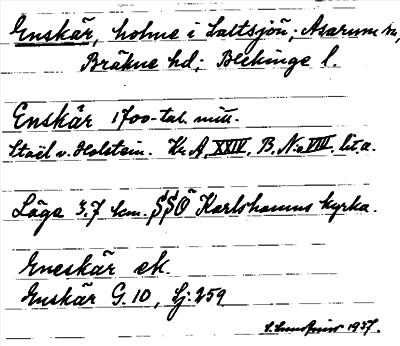 Enskär, holme i Saltsjön, Asarum sn,
Bräkne hd; Blekinge l.
Enskär 1700-tal. mitt.
Staël v. Holstein. Kr. A. XXIV. B. N:o VIII. lit. a.
Läge 3.7 km. SSO Karlshamns kyrka.
Eneskär ek.
Enskär G. 10, Lj: 259
1937.